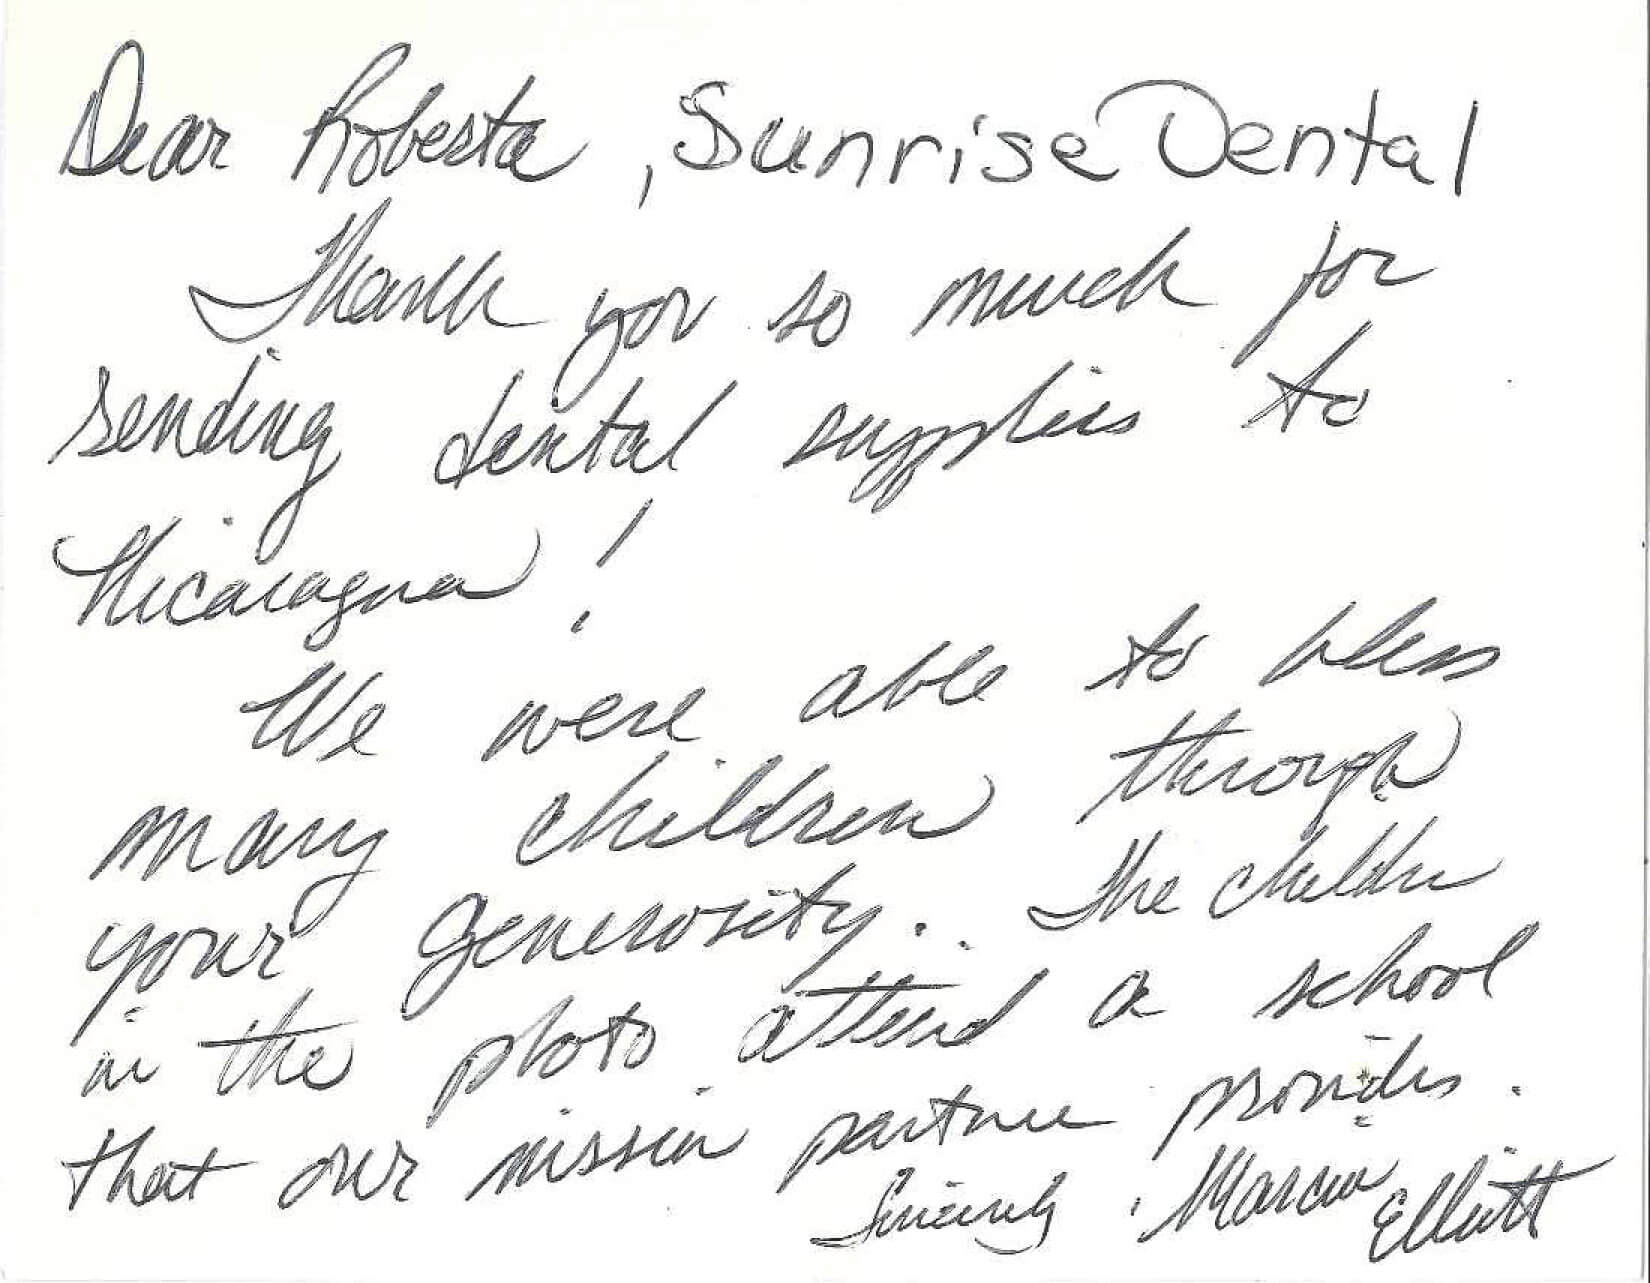 Dear Roberta, Sunrise Dental
Thank you so much for
sending dental supplies to
Nicaragua!
We were able to bless
many children through
your generosity. The children
in the photo attend a school
that our mission partner provides.
Sincerely, Marcia Elliott